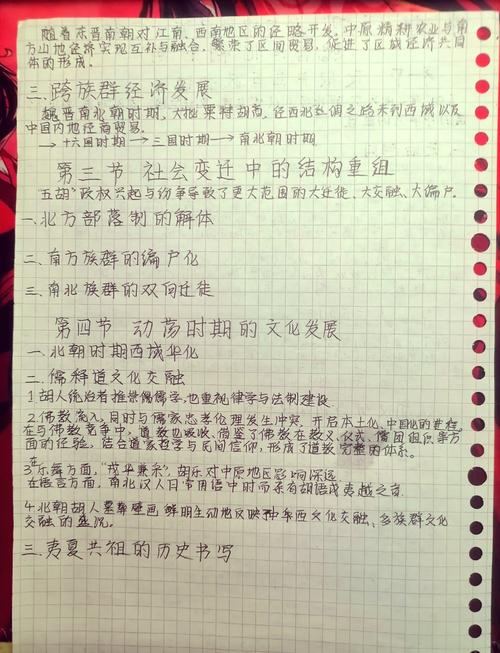 随着东晋南朝对江南、西南地区的经略开发,中原精耕农业与南
方山地经济实现互补与融合,繁荣了区间贸易,促进了区域经济共同
体的形成。
三.跨族群经济发展
魏晋南北朝时期,大批粟特胡商,经西北丝绸之路来到西域以及
中国内地经商贸易。
→十六国时期→三国时期→南北朝时期
第三节 社会变迁中的结构重组
五胡"政权兴起与纷争导致了更大范围的大迁徙、大交融、大编户。
一.北方部落制的解体
二.南方族群的编户化
三.南北族群的双向迁徙
第四节 动荡时期的文化发展
一.北朝时期西域华化
二.儒释道文化交融
1胡人统治者推崇儒学,也重视律学与法制建设
2.佛教流入,同时与儒家忠孝伦理发生冲突,开启本土化、中国化的进程,
在与佛教竞争中,道教也吸收、借鉴了佛教在教义、仪式、僧团组织等方
面的经验,结合道家哲学与民间信仰,形成了道教完整的体系。
在
3乐舞方面,"戎华兼采",胡乐对中原地区影响深远
在语言方面,南北汉人日常用语中时而杂有胡语或夷越之音.
4.北朝胡人墓葬壁画鲜明生动地反映种东西文化交融、多族群文化
交融的盛况。
三.夷夏共祖的历史书写